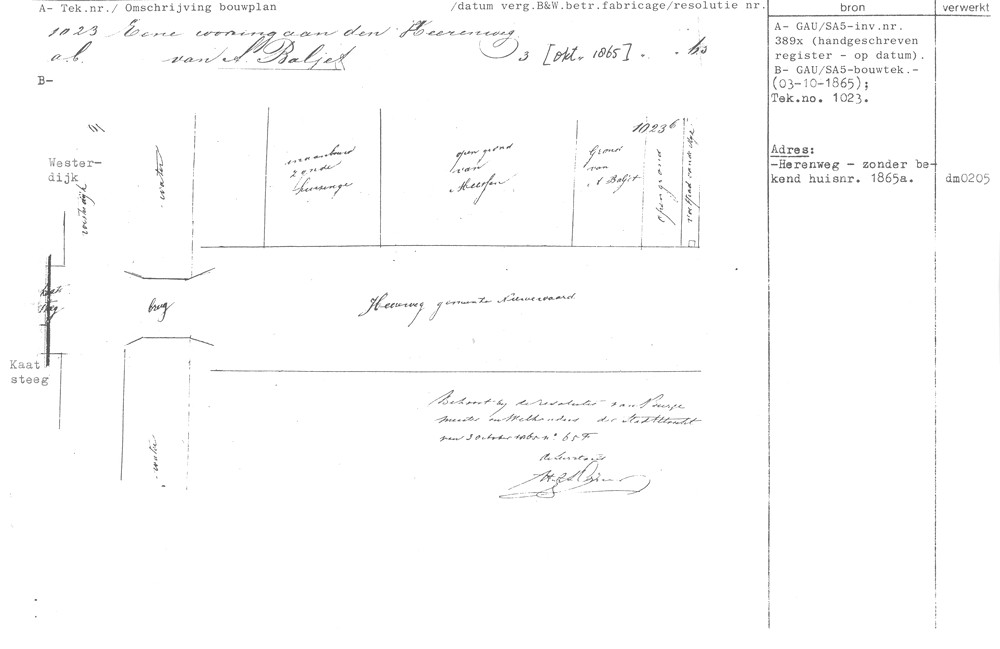 A- Tek.nr./ Omschrijving bouwplan /datum verg.B&W.betr.fabricage/resolutie nr.
bron
verwerkt
1023 Eene woning aan den Heerenweg
a.b. van A. Baljet 3 [okt. 1865].
B-
A- GAU/SA5-inv.nr.
389x (handgeschreven
register - op datum).
B- GAU/SA5-bouwtek.-
(03-10-1865);
Tek.no. 1023.
Adres:
-Herenweg - zonder be-
kend huisnr. 1865a.
dm0205
Wester-
dijk
westdijk
water
huizinge
open grond
van
1023 b
Grond
van
A Baljet
open grond
brug
Heerweg gemeente
Kaat
steeg
Behoort bij de resolutie van Burge
meester en Wethouders der Stad Utrecht
van 3 October 1865 no 65 F
de Secretaris
water